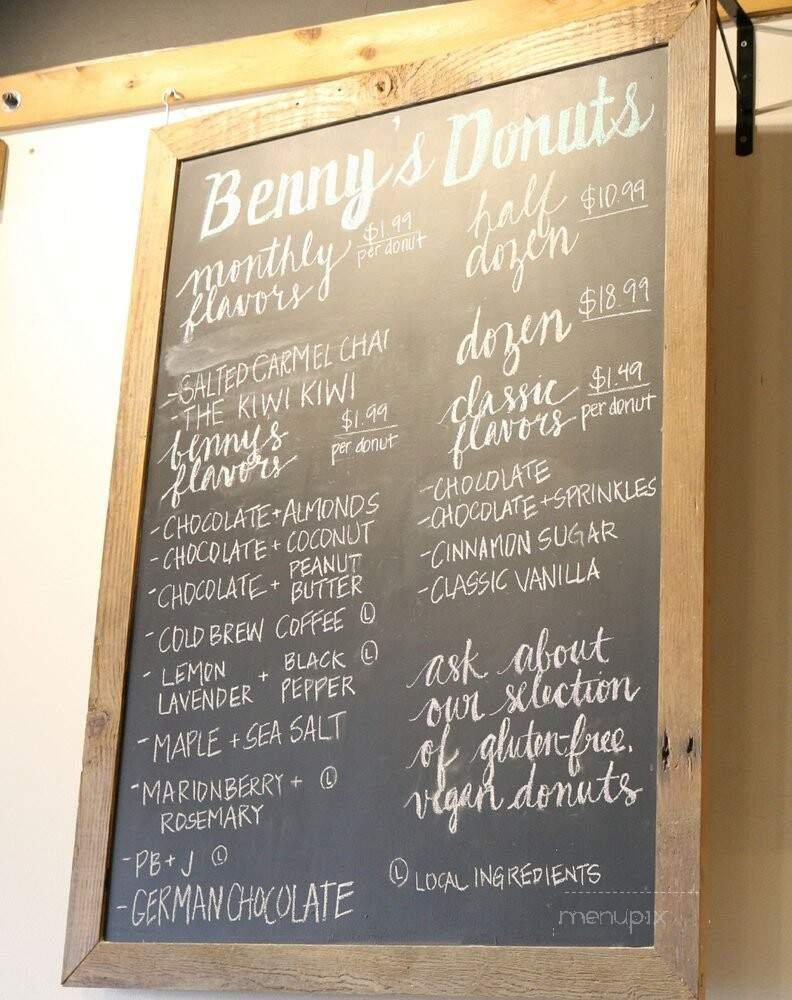 Benny's Donuts
monthly
flavors
$1.99
per donut
-SALTED CARMEL CHAI
-THE KIWI KIWI
benny's
flavors
$1.99
per donut
-CHOCOLATE+ALMONDS
-CHOCOLATE+COCONUT
-CHOCOLATE + PEANUT
BUTTER
-COLD BREW COFFEE Ⓛ
-LEMON
LAVENDER + BLACK
PEPPER Ⓛ
-MAPLE + SEA SALT
-MARIONBERRY + Ⓛ
ROSEMARY
-PB+J Ⓛ
-GERMAN CHOCOLATE
half
dozen
$10.99
dozen
$18.99
classic
flavors
$1.49
per donut
-CHOCOLATE
-CHOCOLATE+SPRINKLES
-CINNAMON SUGAR
-CLASSIC VANILLA
ask about
our selection
of gluten-free,
vegan donuts
Ⓛ LOCAL INGREDIENTS
menupix